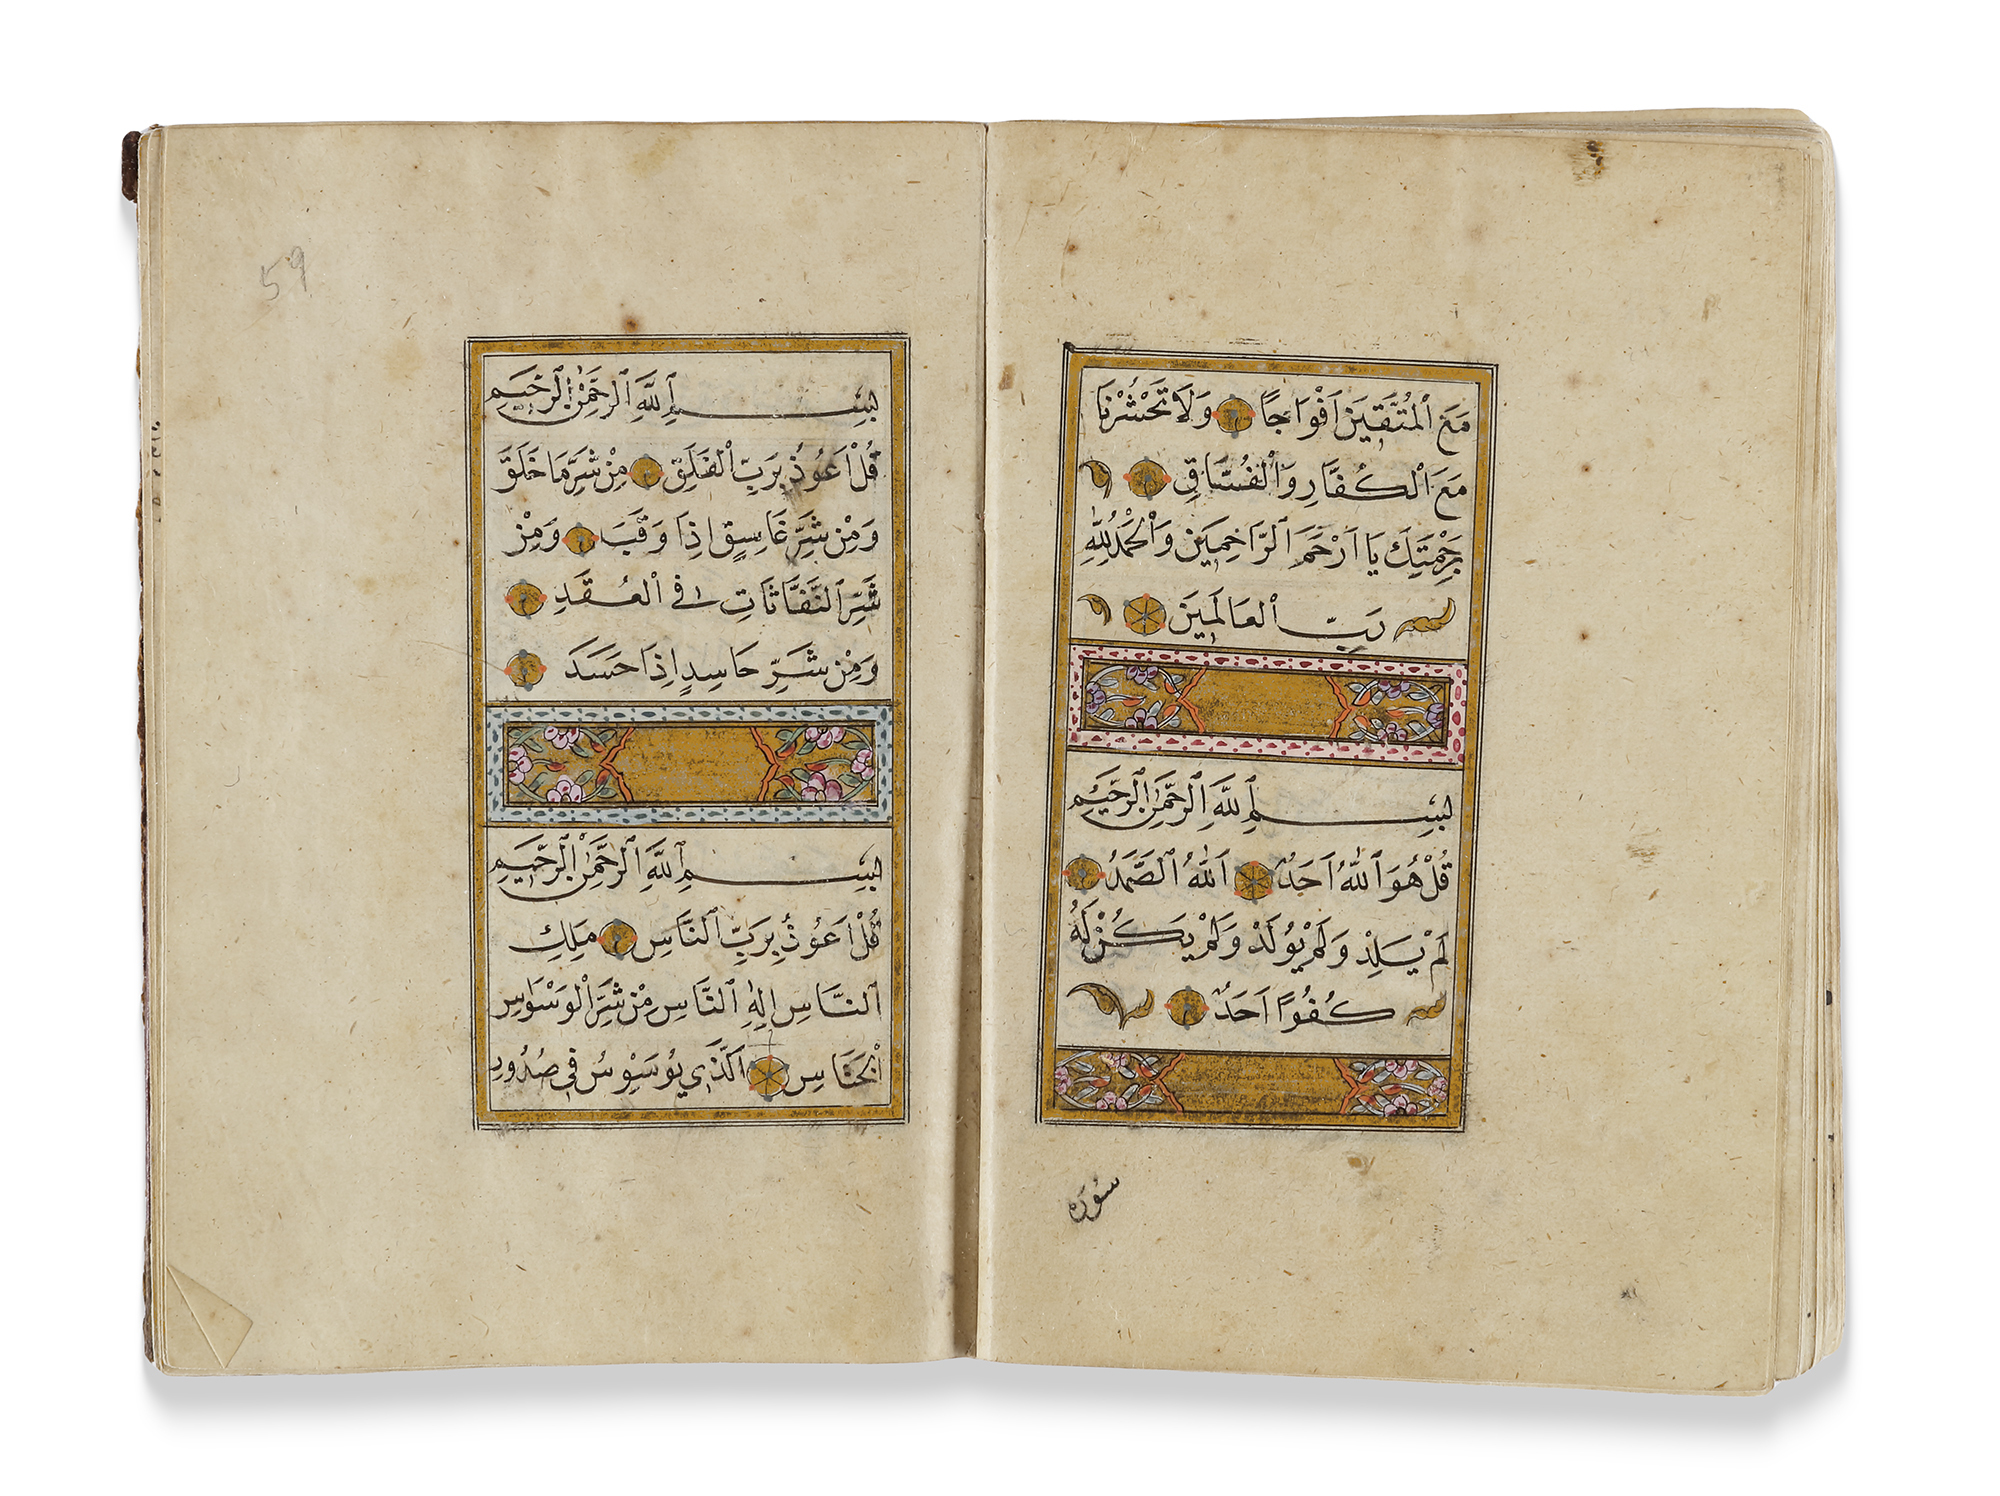 مَعَ الْمُتَّقِينَ اَفْوَاجًا وَلَا تَحْشُرْنَا
مَعَ الْكُفَّارِ وَالْفُسَّاقِ
بِرَحْمَتِكَ يَا اَرْحَمَ الرَّاحِمِينَ وَالْحَمْدُ لِلّٰهِ
رَبِّ الْعَالَمِينَ
بِسْمِ اللّٰهِ الرَّحْمٰنِ الرَّحِيمِ
قُلْ هُوَ اللّٰهُ اَحَدٌ اَللّٰهُ الصَّمَدُ
لَمْ يَلِدْ وَلَمْ يُولَدْ وَلَمْ يَكُنْ لَهُ
كُفُوًا اَحَدٌ
سوره
59
بِسْمِ اللّٰهِ الرَّحْمٰنِ الرَّحِيمِ
قُلْ اَعُوذُ بِرَبِّ الْفَلَقِ مِنْ شَرِّ مَا خَلَقَ
وَمِنْ شَرِّ غَاسِقٍ اِذَا وَقَبَ وَمِنْ
شَرِّ النَّفَّاثَاتِ فِى الْعُقَدِ
وَمِنْ شَرِّ حَاسِدٍ اِذَا حَسَدَ
بِسْمِ اللّٰهِ الرَّحْمٰنِ الرَّحِيمِ
قُلْ اَعُوذُ بِرَبِّ النَّاسِ مَلِكِ
النَّاسِ اِلٰهِ النَّاسِ مِنْ شَرِّ الْوَسْوَاسِ
الْخَنَّاسِ اَلَّذِي يُوَسْوِسُ فِى صُدُورِ